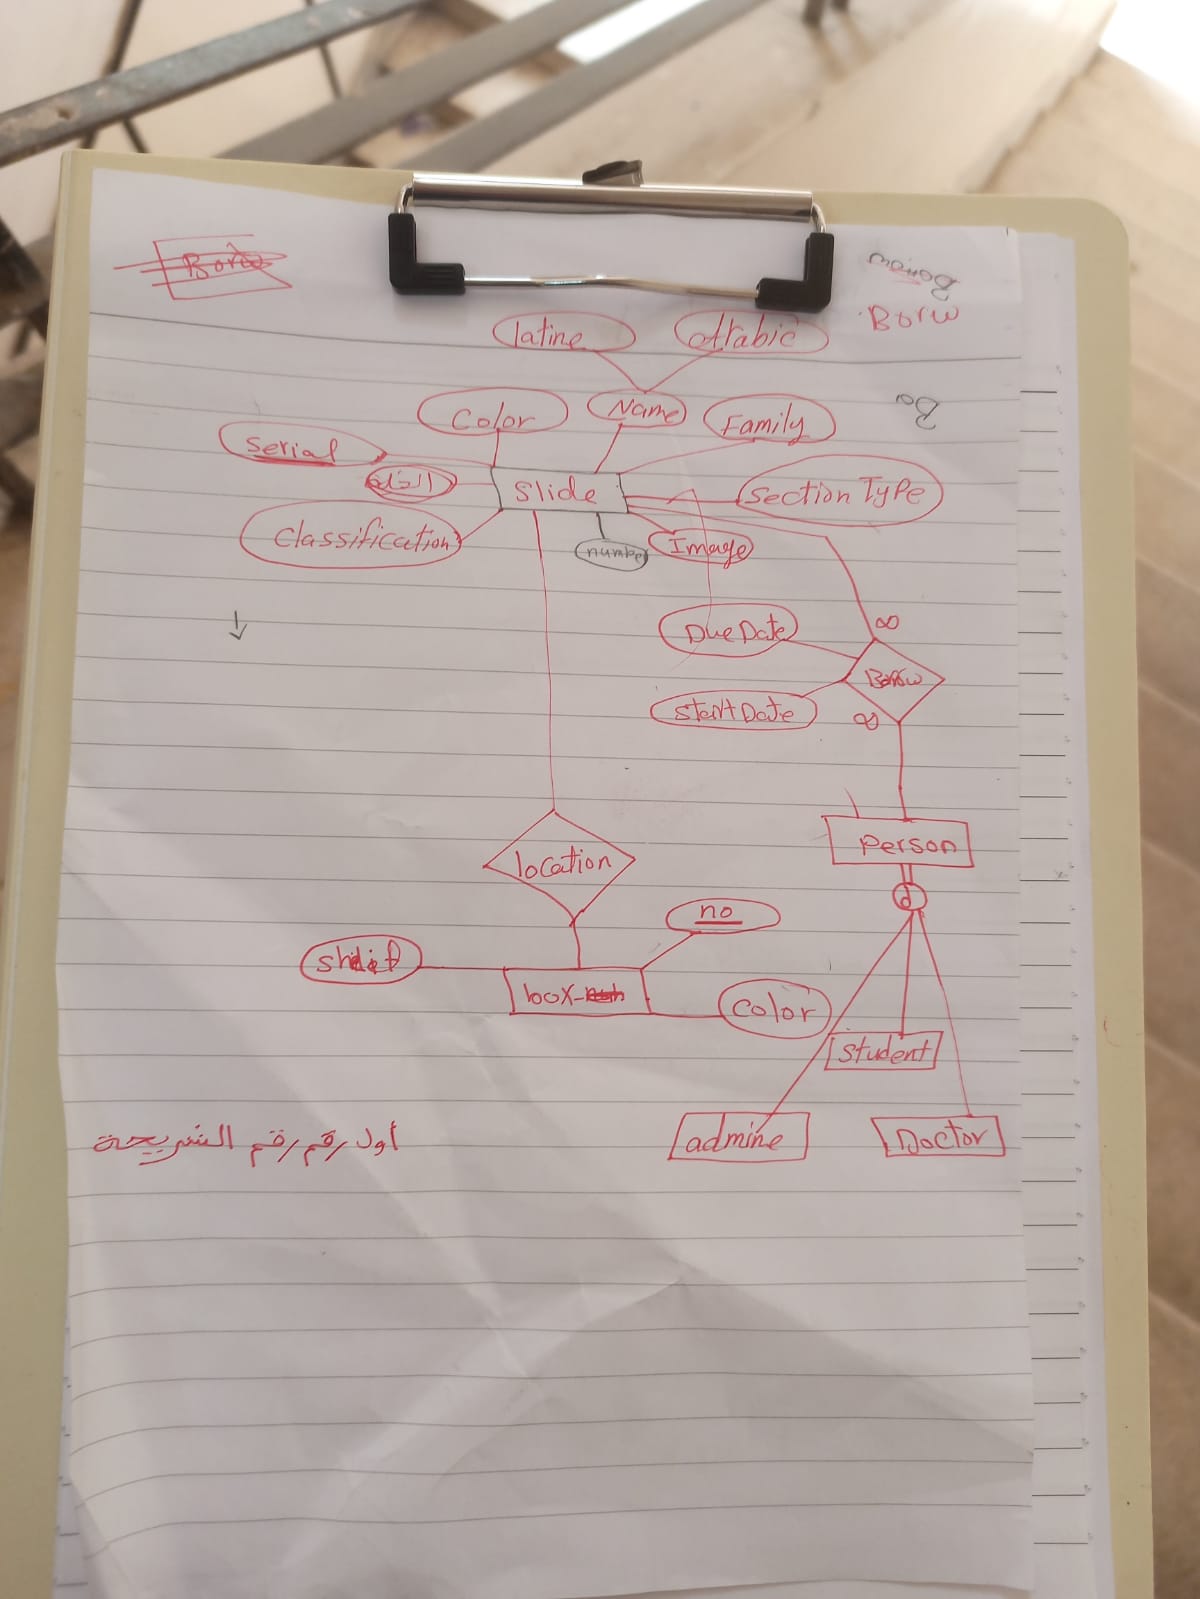 Borrow
Borw
Bo
latine
Arabic
Color
Name
Family
Serial
Slide
Section Type
Classification
number
Image
Due Date
∞
Borrow
Start Date
∞
Person
location
d
no
box-
Color
student
أول رقم رقم الشريحة
admine
Doctor